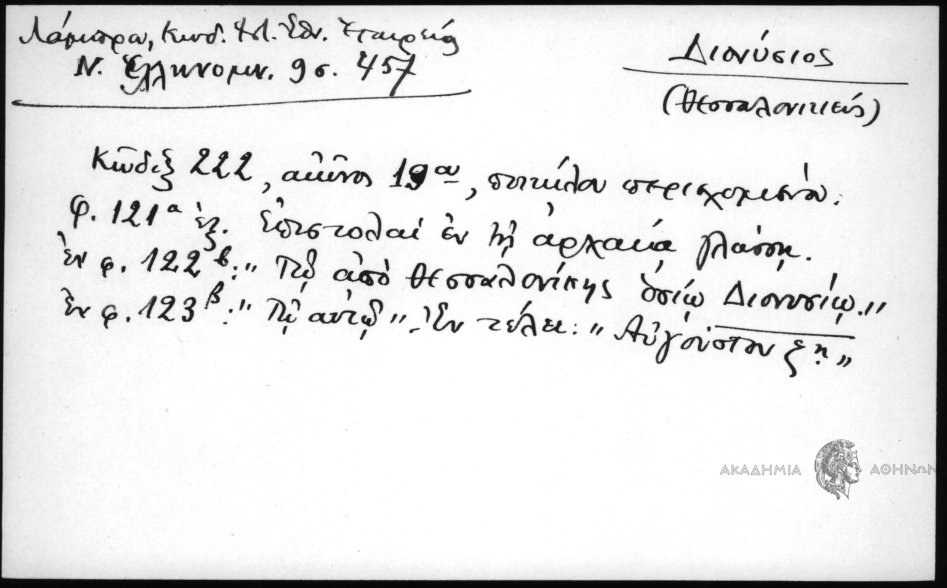 Λάμπρου, Κωδ. Ἱστ. Ἐθν. Ἑταιρείας
Ν. Ἑλληνομν. 9 σ. 457
Διονύσιος
(Θεσσαλονικεύς)
Κῶδιξ 222, αἰῶνος 19ου, ποικίλου περιεχομένου.
φ. 121α ἑξ. Ἐπιστολαὶ ἐν τῇ ἀρχαίᾳ γλώσσῃ.
Ἐν φ. 122β: "Τῷ ἀπὸ Θεσσαλονίκης ὁσίῳ Διονυσίῳ."
Ἐν φ. 123β: "Τῷ αὐτῷ". Ἐν τέλει: "Αὐγούστου ξη"
ΑΚΑΔΗΜΙΑ ΑΘΗΝΩΝ